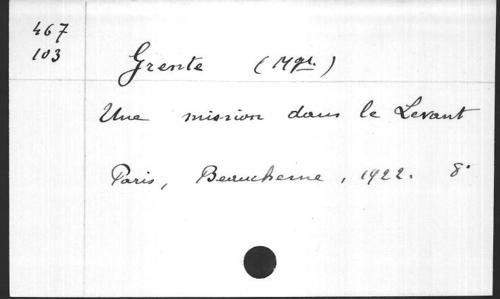 467
103
Grente (Mgr.)
Une mission dans le Levant
Paris, Beauchesne, 1922. 8°